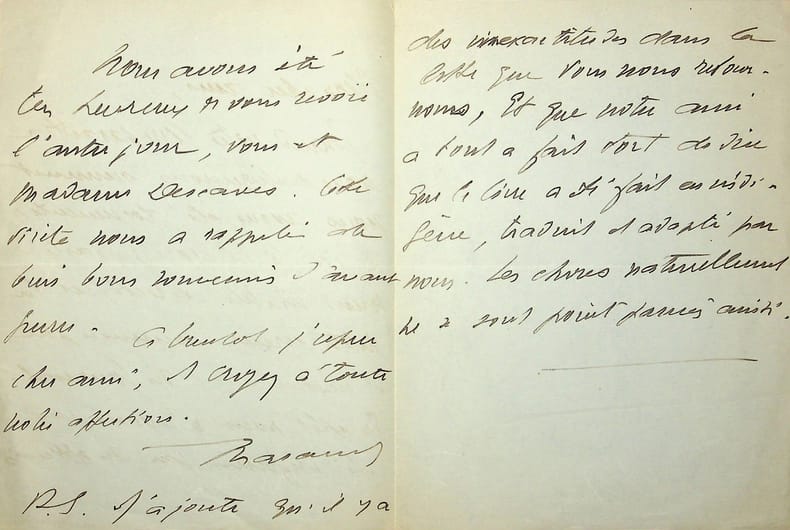 Nous avons été
très heureux de vous revoir
l'autre jour, vous et
madame Descaves. Cette
visite nous a rappelé de
bien bons souvenirs d'avant
guerre. A bientôt j'espère
cher ami, et croyez à toute
notre affection.
P.S. J'ajoute qu'il y a
des inexactitudes dans la
lettre que vous nous retour-
nons, et que notre ami
a tout a fait tort de dire
que le livre a été fait en indi-
gène, traduit et adapté par
nous. Les choses naturellement
ne se sont point passées ainsi.